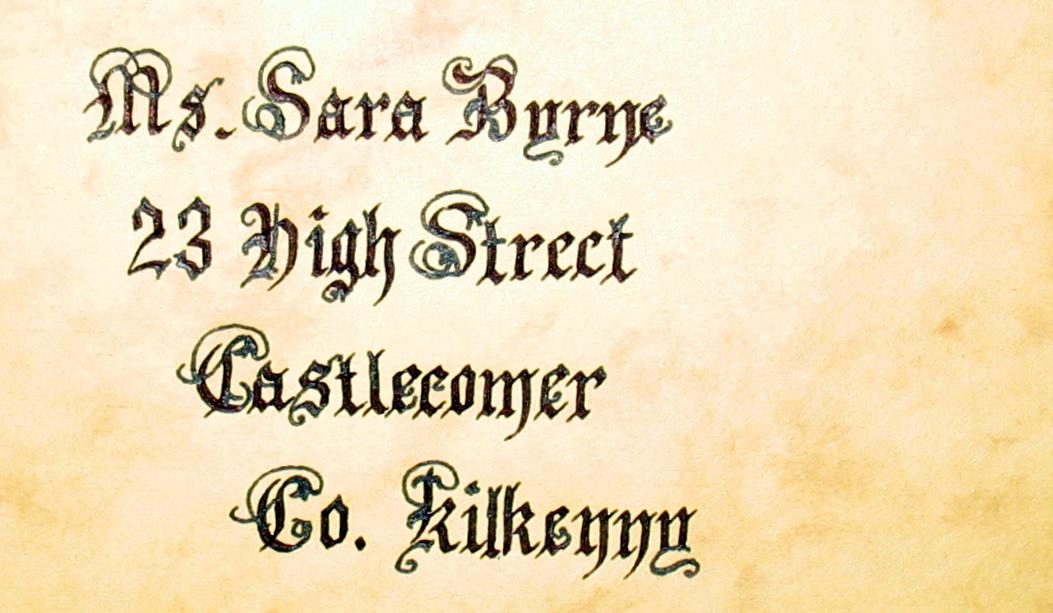 Ms. Sara Byrne
23 High Street
Castlecomer
Co. Kilkenny